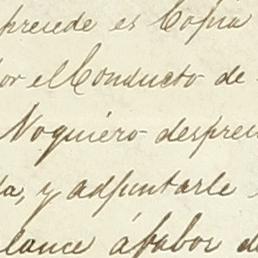 precede es Copia
or el Conducto de
Noquiero despren
da, y adjuntarle
lance áfabor de